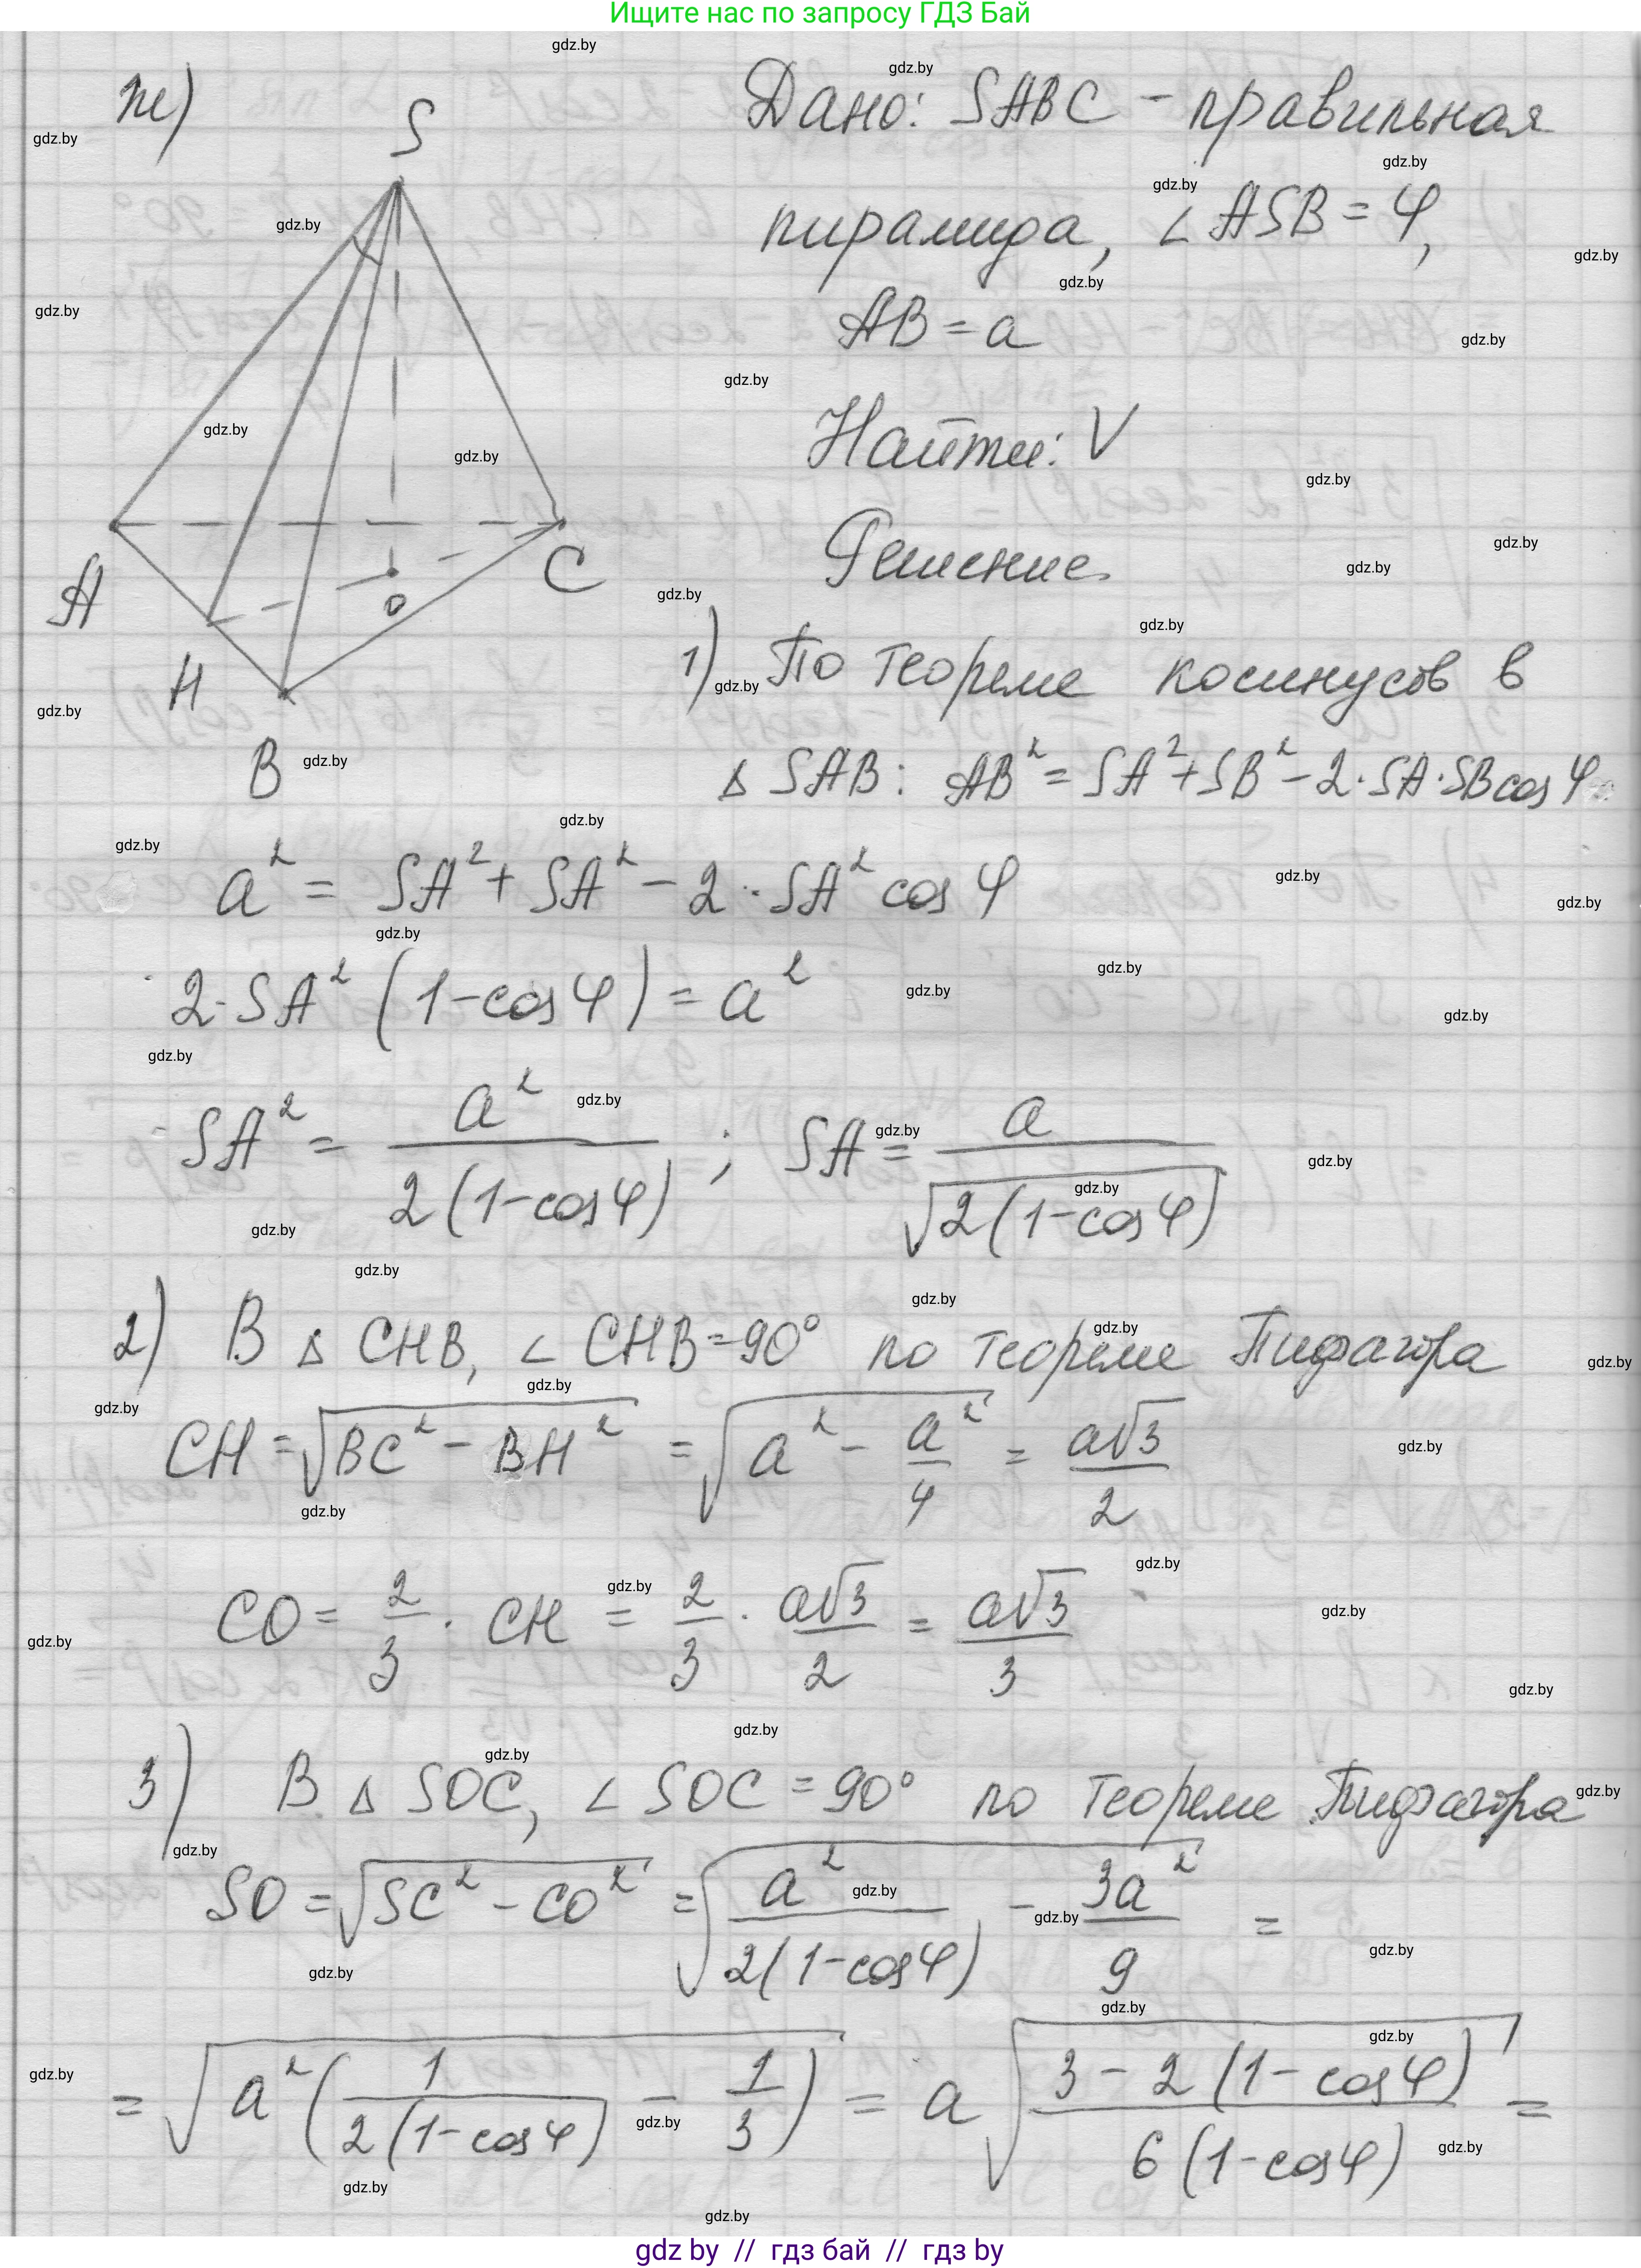 Ищите нас по запросу ГДЗ Бай
ж)
S
A
H
B
C
O
Дано: SABC - правильная
пирамида, ∠ASB = φ,
AB = a
Найти: V
Решение
1) По теореме косинусов в
Δ SAB: AB² = SA² + SB² - 2·SA·SB cos φ
a² = SA² + SA² - 2·SA² cos φ
2·SA² (1-cos φ) = a²
SA² = a² / (2(1-cos φ)) ; SA = a / √(2(1-cos φ))
2) В Δ CHB, ∠ CHB = 90° по теореме Пифагора
CH = √(BC² - BH²) = √(a² - a²/4) = a√3/2
CO = 2/3 · CH = 2/3 · a√3/2 = a√3/3
3) В Δ SOC, ∠ SOC = 90° по теореме Пифагора
SO = √(SC² - CO²) = √(a²/(2(1-cos φ)) - 3a²/9) =
= √(a²(1/(2(1-cos φ)) - 1/3)) = a√((3 - 2(1-cos φ))/(6(1-cos φ))) =
gdz by // гдз бай // гдз by